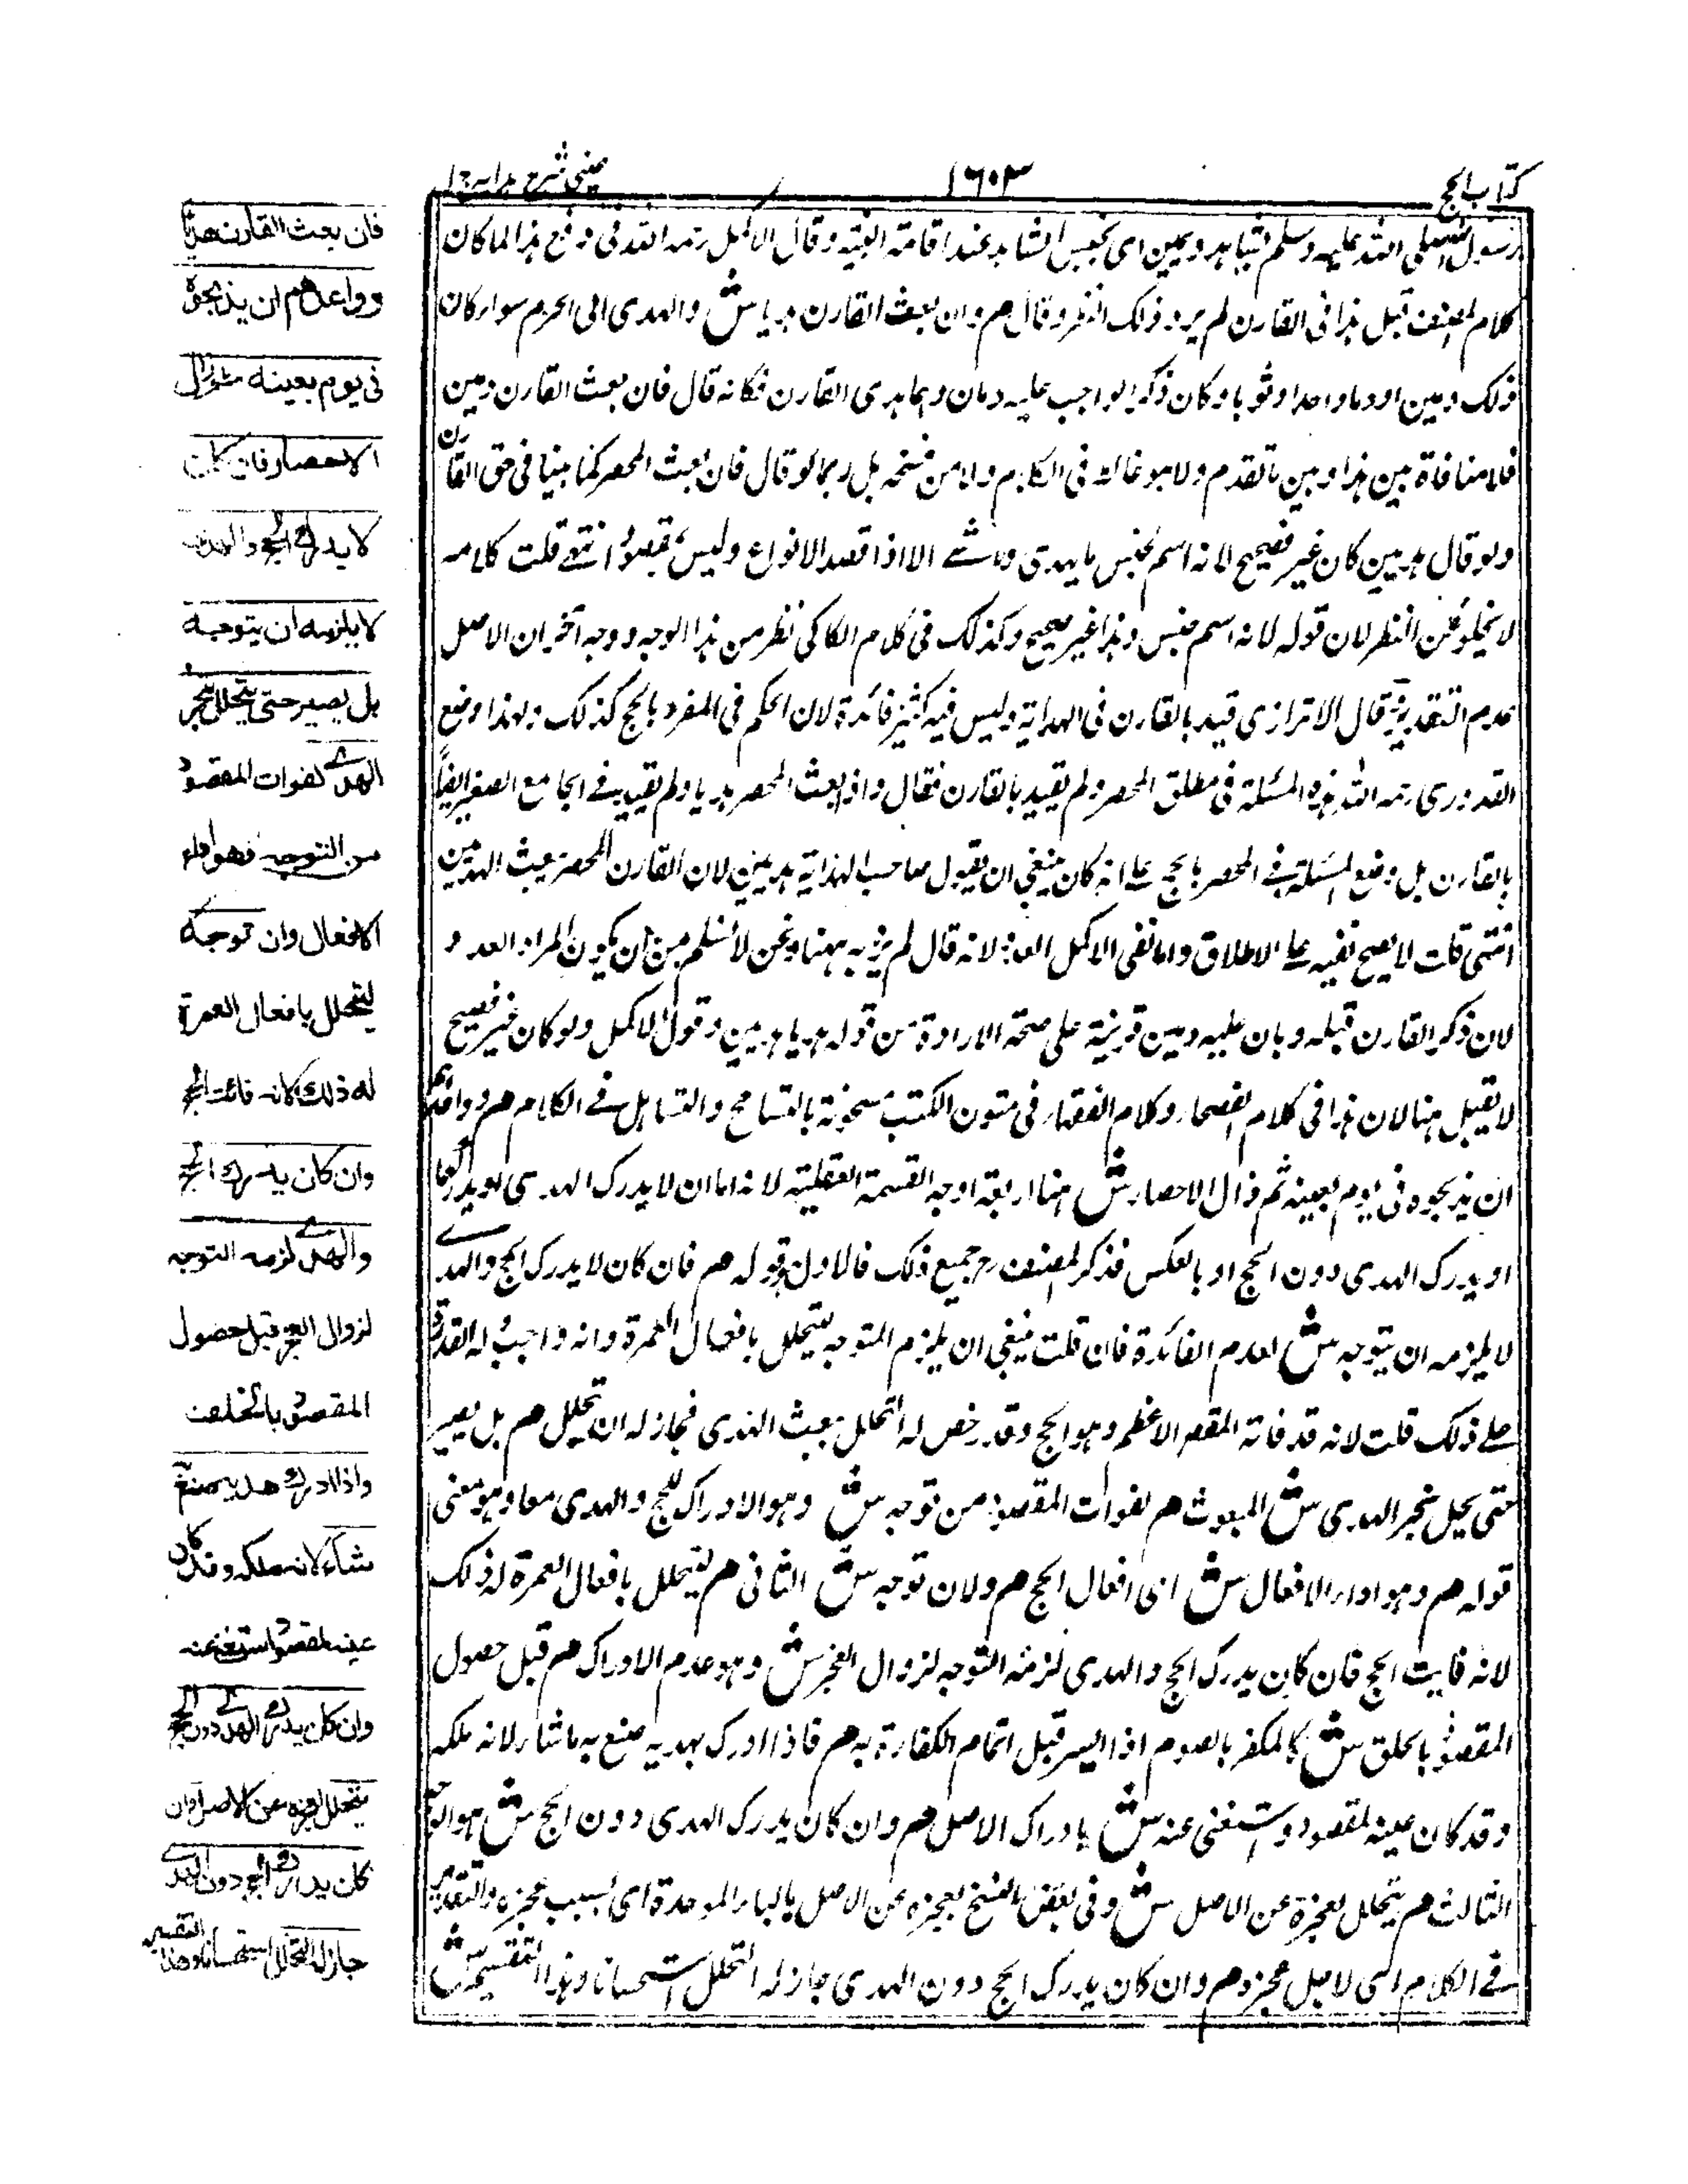 كتاب الحج
١٦٠٣
عيني شرح هدايه ج ١
رسول الله صلى الله عليه وسلم بشاهد ويمين اى بجنس الشاهد عند اقامة البينة وقال الاكمل رحمه الله فى دفع هذا لما كان
كلام المصنف قبل هذا فى القارن لم يرد ذلك النظر وقال هم وان بعث القارن هديا ش والهدى الى الحرم سواء كان
ذلك دمين او دما واحدا وثوبا وكان ذكر الواجب عليه دمان وهما هدى القارن فكانه قال فان بعث القارن دمين
فلا منافاة بين هذا وبين ما تقدم ولا هو غالا فى الكلام ولا من نسخه بل ربما لو قال فان بعث المحصر كنا بينا فى حق القارن
ولو قال هديين كان غير فصيح لانه اسم لجنس ما يهدى الا اذا قصد الانواع وليس بمقصود انتهى قلت كلامه
لا يخلو عن النظر لان قوله لانه اسم جنس وهذا غير صحيح وكذلك فى كلام الكاكى نظر من هذا الوجه ووجه آخر ان الاصل
عدم التقدير قال الاترازى قيد بالقارن فى الهداية وليس فيه كثير فائدة لان الحكم فى المفرد بالحج كذلك ولهذا وضع
القدورى رحمه الله هذه المسئلة فى مطلق المحصر ولم يقيد بالقارن فقال واذا بعث المحصر هديا ولم يقيد فى الجامع الصغير ايضا
بالقارن بل وضع المسئلة فى المحصر بالحج على انه كان ينبغى ان يقول صاحب الهداية هديين لان القارن المحصر يبعث الهديين
انتهى قلت لا يصح نفيه على الاطلاق واما نفى الاكمل لانه قال لم يرد به ههنا ونحن لا نسلم من ان يكون المراد العدد
لان ذكر القارن قبله وبان عليه دمين قرينة على صحة الارادة من قوله هديا هديين وقول الاكمل ولو كان غير فصيح
لا يقبل هنا لان هذا فى كلام الفصحاء وكلام الفقهاء فى متون الكتب مشحونة بالتسامح والتساهل فى الكلام هم وواعدهم
ان يذبحوه فى يوم بعينه ثم زال الاحصار ش هنا اربعة اوجه القسمة العقلية لانه اما ان لا يدرك الهدى او يدركهما
او يدرك الهدى دون الحج او بالعكس فذكر المصنف رح جميع ذلك فالاول قوله هم فان كان لا يدرك الحج والهدى
لا يلزمه ان يتوجه ش لعدم الفائدة فان قلت ينبغى ان يلزم التوجه ليتحلل بافعال العمرة وانه واجب له القدرة
على ذلك قلت لانه قد فاته المقصود الاعظم وهو الحج وقد رخص له التحلل ببعث الهدى فجاز له ان يتحلل هم بل يصير
حتى يحل بنحر الهدى ش المبعوث هم لفوات المقصود من توجه ش وهو الادراك للحج والهدى معا وهو معنى
قوله هم وهو اداء الافعال ش اى افعال الحج هم ولان توجه ش الثانى هم ليتحلل بافعال العمرة له ذلك
لانه فايت الحج فان كان يدرك الحج والهدى لزمه التوجه لزوال العجز ش وهو عدم الادراك هم قبل حصول
المقصود بالخلف ش كالمكفر بالصوم اذا ايسر قبل اتمام الكفارة به هم فاذا ادرك هديه صنع به ما شاء لانه ملكه
وقد كان عينه لمقصود واستغنى عنه ش بادراك الاصل هم وان كان يدرك الهدى دون الحج ش هو الوجه
الثالث هم يتحلل لعجزه عن الاصل ش وفى بعض النسخ بعجزه عن الاصل بالباء الموحدة اى بسبب عجزه والتقدير
فى الكلام اى لاجل عجزه هم وان كان يدرك الحج دون الهدى جاز له التحلل استحسانا وهذا التقسيم ش
فان بعث القارن هديا
وواعدهم ان يذبحوه
فى يوم بعينه ثم زال
الاحصار فان كان
لا يدرك الحج والهدى
لا يلزمه ان يتوجه
بل يصير حتى يتحلل بنحر
الهدى لفوات المقصود
من التوجه وهو اداء
الافعال وان توجه
ليتحلل بافعال العمرة
له ذلك لانه فائت الحج
وان كان يدرك الحج
والهدى لزمه التوجه
لزوال العجز قبل حصول
المقصود بالخلف
واذا ادرك هديه صنع به
شاء لانه ملكه وقد كان
عينه لمقصود استغنى عنه
وان كان يدرك الهدى دون الحج
يتحلل لعجزه عن الاصل وان
كان يدرك الحج دون الهدى
جاز له التحلل استحسانا وهذا التقسيم